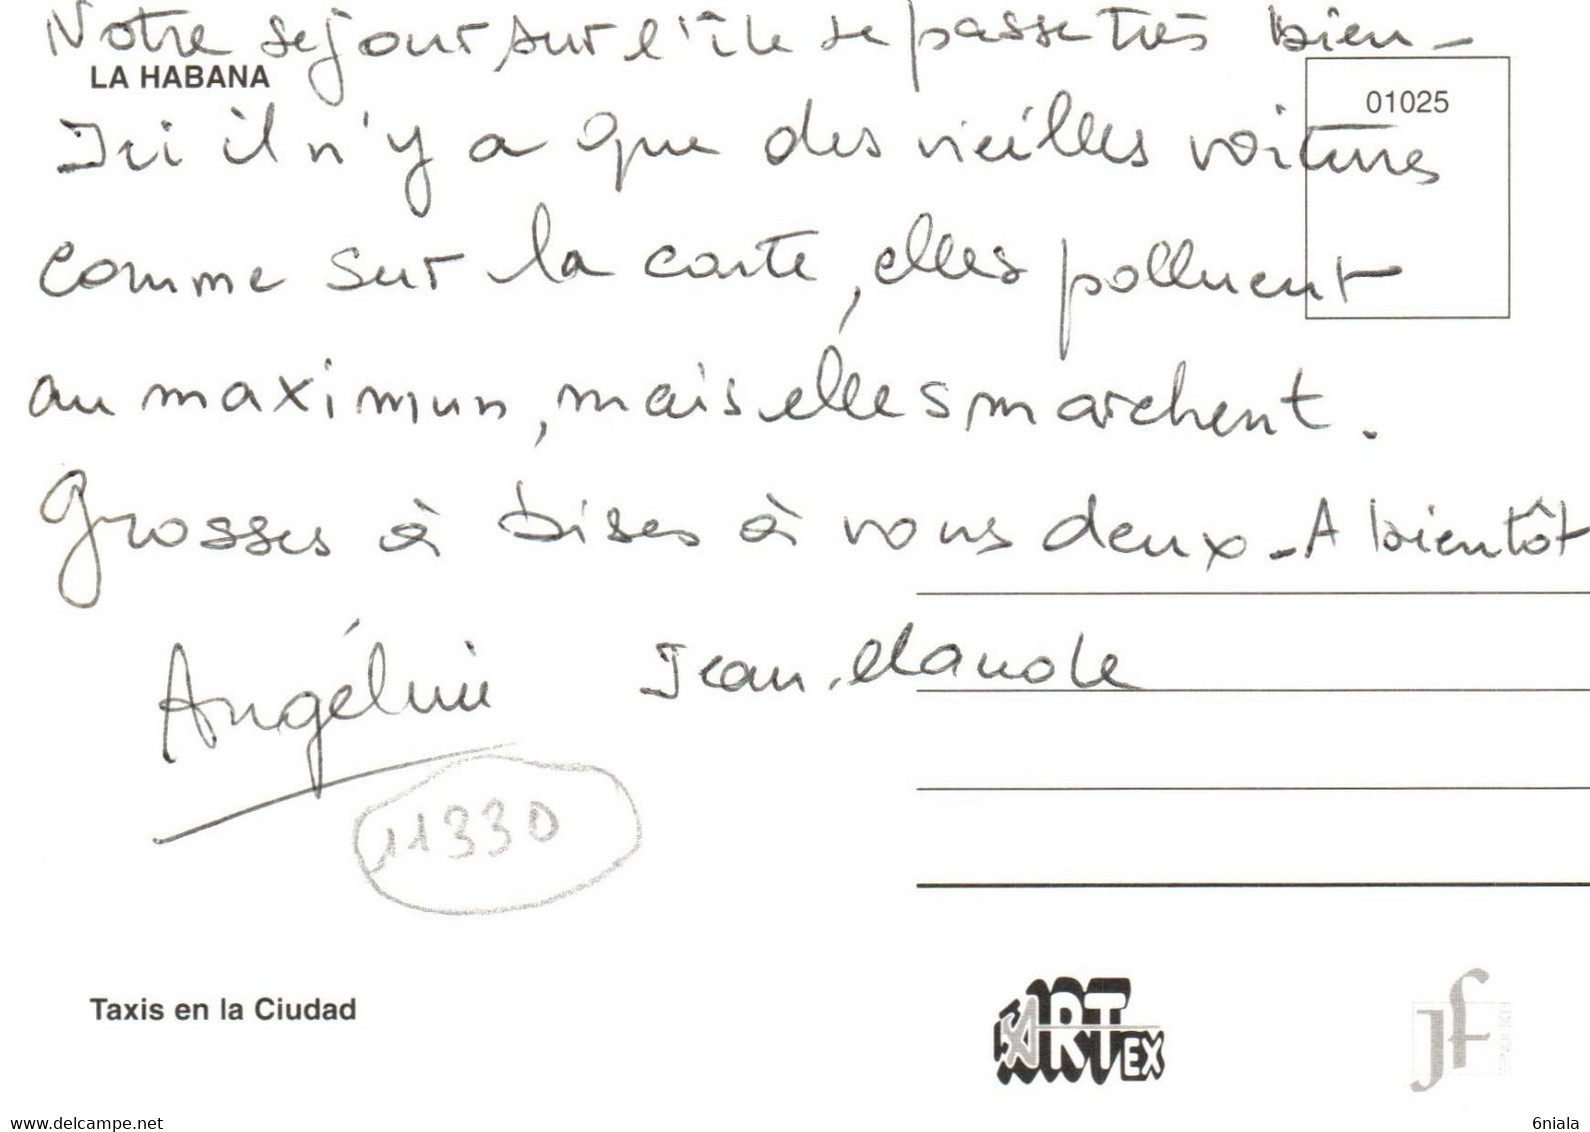 Notre sejour sur l'île se passe très bien -
LA HABANA
01025
Ici il n'y a que des vieilles voitures
comme sur la carte, elles polluent
au maximun, mais elles marchent.
Grosses à bises à vous deux - A bientôt
Angélini Jean-Claude
11330
Taxis en la Ciudad
ARTEX
jf
www.delcampe.net
6niala